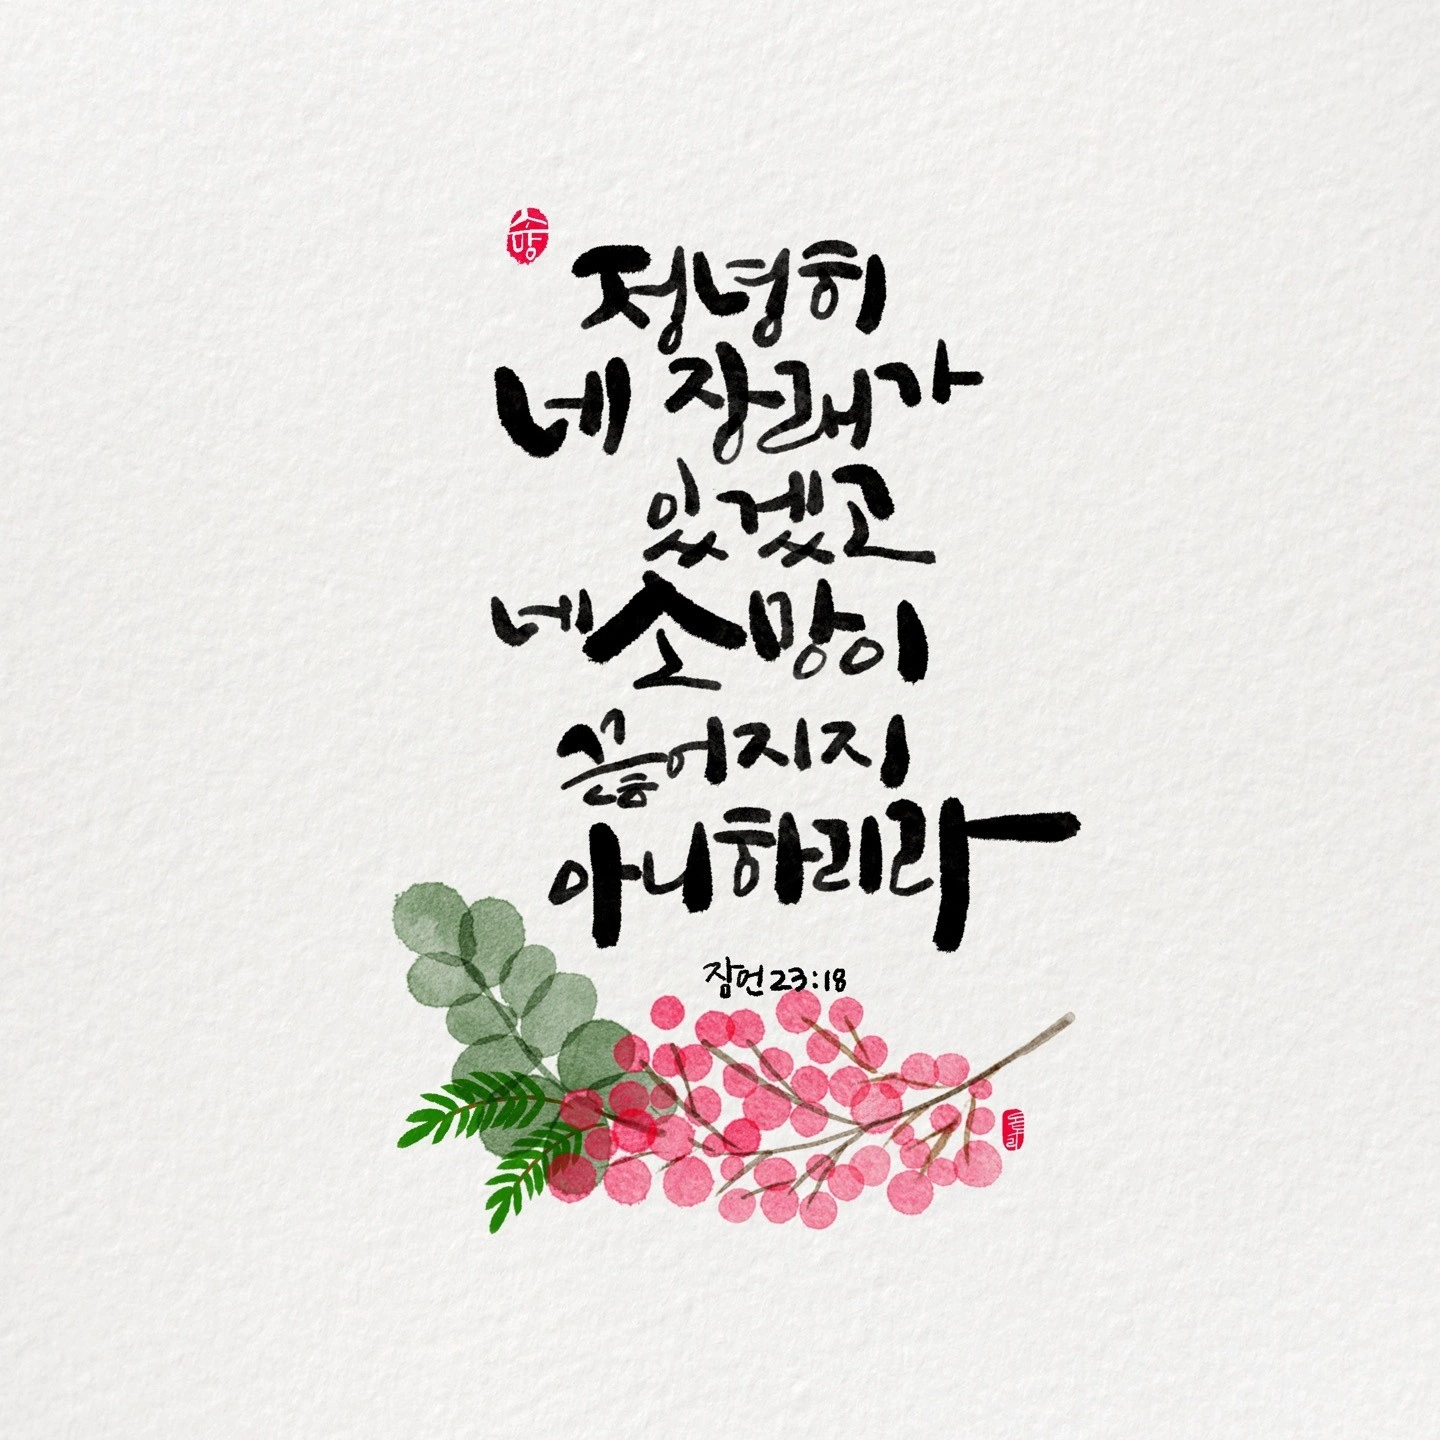 소망
정녕히
네 장래가
있겠고
네 소망이
끊어지지
아니하리라
잠언 23:18